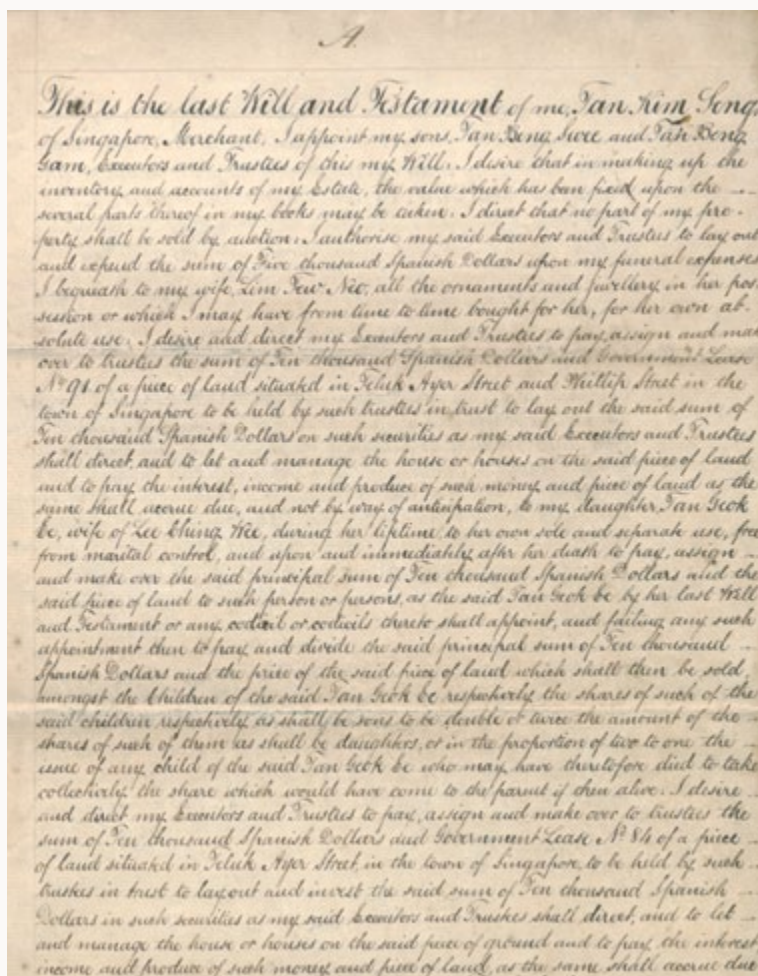 A.
This is the last Will and Testament of me, Tan Kim Seng,
of Singapore, Merchant, I appoint my sons, Tan Beng Swee and Tan Beng
Gam, Executors and Trustees of this my Will. I desire that in making up the
inventory and accounts of my Estate, the value which has been fixed upon the
several parts thereof in my books may be taken. I direct that no part of my pro-
perty shall be sold by auction. I authorise my said Executors and Trustees to lay out
and expend the sum of Five thousand Spanish Dollars upon my funeral expenses
I bequeath to my wife, Lim Neo, all the ornaments and jewellery in her pos
session or which I may have from time to time bought for her, for her own ab-
solute use. I desire and direct my Executors and Trustees to pay, assign and mak
over to trustees the sum of Ten thousand Spanish Dollars and Government Lease
No 91 of a piece of land situated in Teluk Ayer Street and Phillip Street in the
town of Singapore to be held by such trustees in trust to lay out the said sum of
Ten thousand Spanish Dollars on such securities as my said Executors and Trustees
shall direct, and to let and manage the house or houses on the said piece of land
and to pay the interest, income and produce of such money and piece of land as the
same shall accrue due, and not by way of anticipation, to my daughter, Tan Geok
be, wife of Lee Ching Wee, during her lifetime, to her own sole and separate use, free
from marital control, and upon and immediately after her death to pay, assign
and make over the said principal sum of Ten thousand Spanish Dollars and the
said piece of land to such person or persons, as the said Tan Geok be by her last Will
and Testament or any codicil or codicils thereto shall appoint, and failing any such
appointment then to pay and divide the said principal sum of Ten thousand
Spanish Dollars and the price of the said piece of land which shall then be sold,
amongst the Children of the said Tan Geok be respectively the shares of such of the
said children respectively as shall be sons to be double or twice the amount of the
shares of such of them as shall be daughters, or in the proportion of two to one the
issue of any child of the said Tan Geok be who may have theretofore died to take
collectively the share which would have come to the parent if then alive. I desire
and direct my Executors and Trustees to pay, assign and make over to trustees the
sum of Ten thousand Spanish Dollars and Government Lease No 84 of a piece
of land situated in Teluk Ayer Street, in the town of Singapore, to be held by such
trustees in trust to lay out and invest the said sum of Ten thousand Spanish
Dollars in such securities as my said Executors and Trustees shall direct, and to let
and manage the house or houses on the said piece of ground and to pay the interest
income and produce of such money and piece of land, as the same shall accrue due